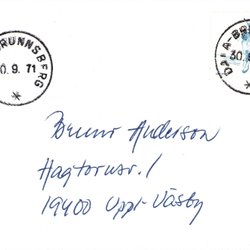 BRUNNSBERG
30.9.71
DJIA-BR
30.
Benner Anderson
Hagtornsv. 1
19400 Uppl-Väsby